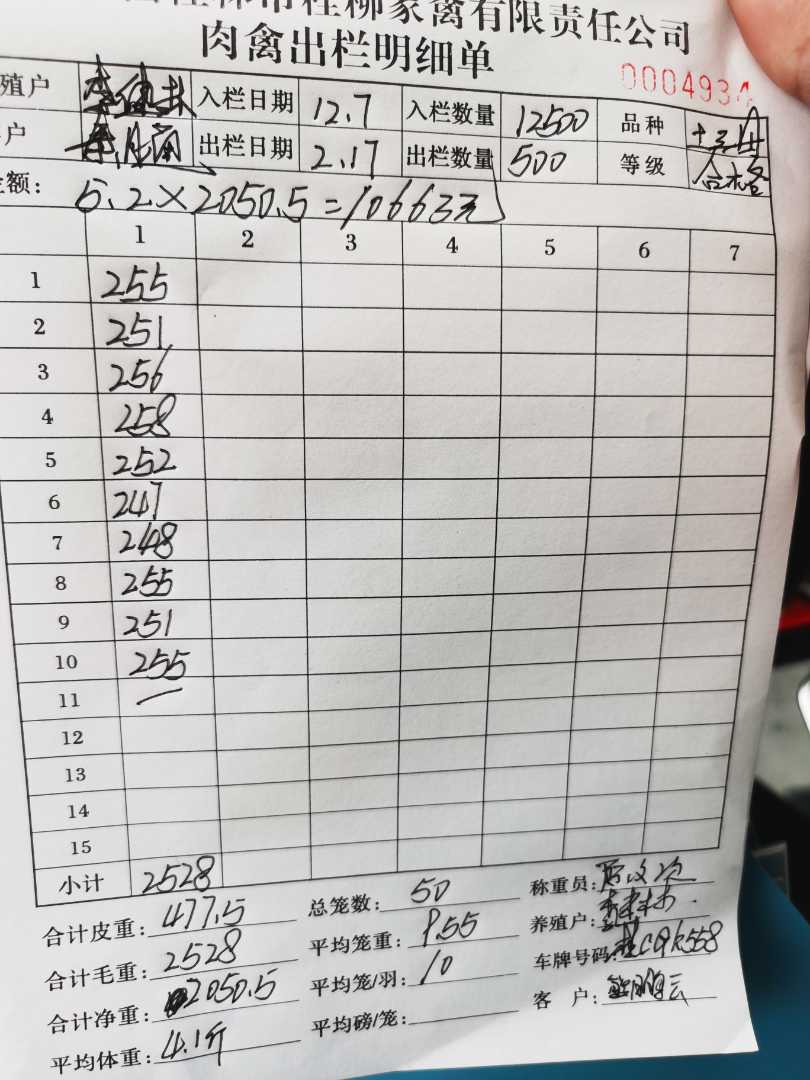 桂柳家禽有限责任公司
肉禽出栏明细单
000493
殖户 入栏日期 12.7 入栏数量 12500 品种
户 出栏日期 2.17 出栏数量 500 等级 合格
额: 5.2×2050.5=10663元
1 2 3 4 5 6 7
1 255
2 251
3 256
4 258
5 252
6 247
7 248
8 255
9 251
10 255
11 —
12
13
14
15
小计 2528
合计皮重: 477.5 总笼数: 50 称重员:
合计毛重: 2528 平均笼重: 9.55 养殖户:
合计净重: 2050.5 平均笼/羽: 10 车牌号码:
平均体重: 4.1斤 平均磅/笼: 客 户: